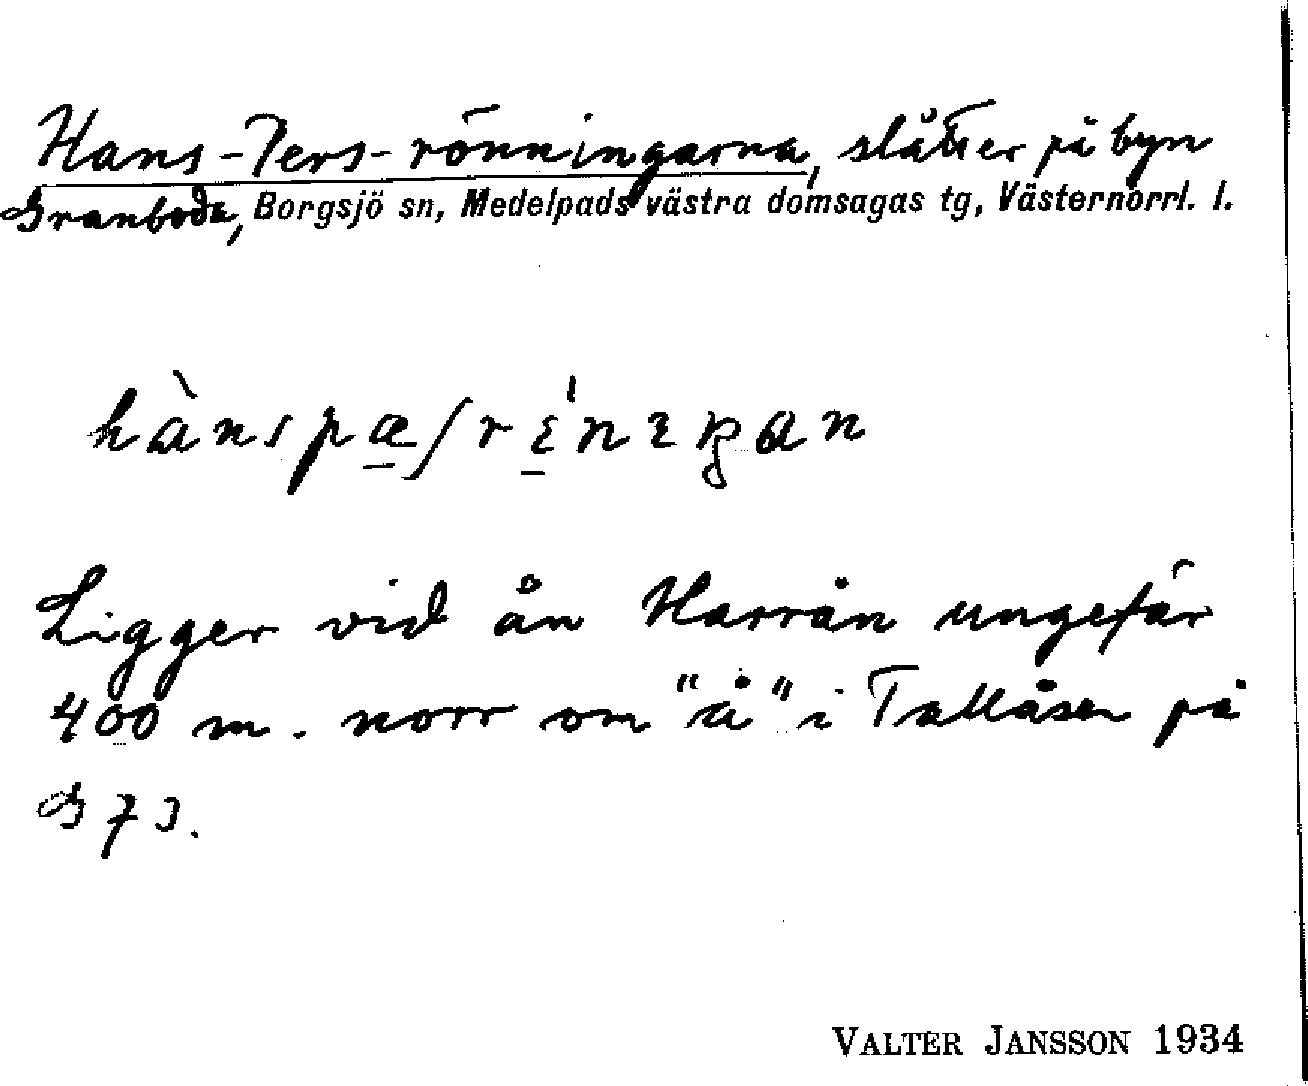 Hans-Pers-rönningarna, slåtter på byn
Granboda, Borgsjö sn, Medelpads västra domsagas tg, Västernorrl. l.
hànspæʃrɛ́nɪŋan
Ligger vid ån Harrån ungefär
400 m. norr om "å" i Tallåsen på
GTJ.
VALTER JANSSON 1934